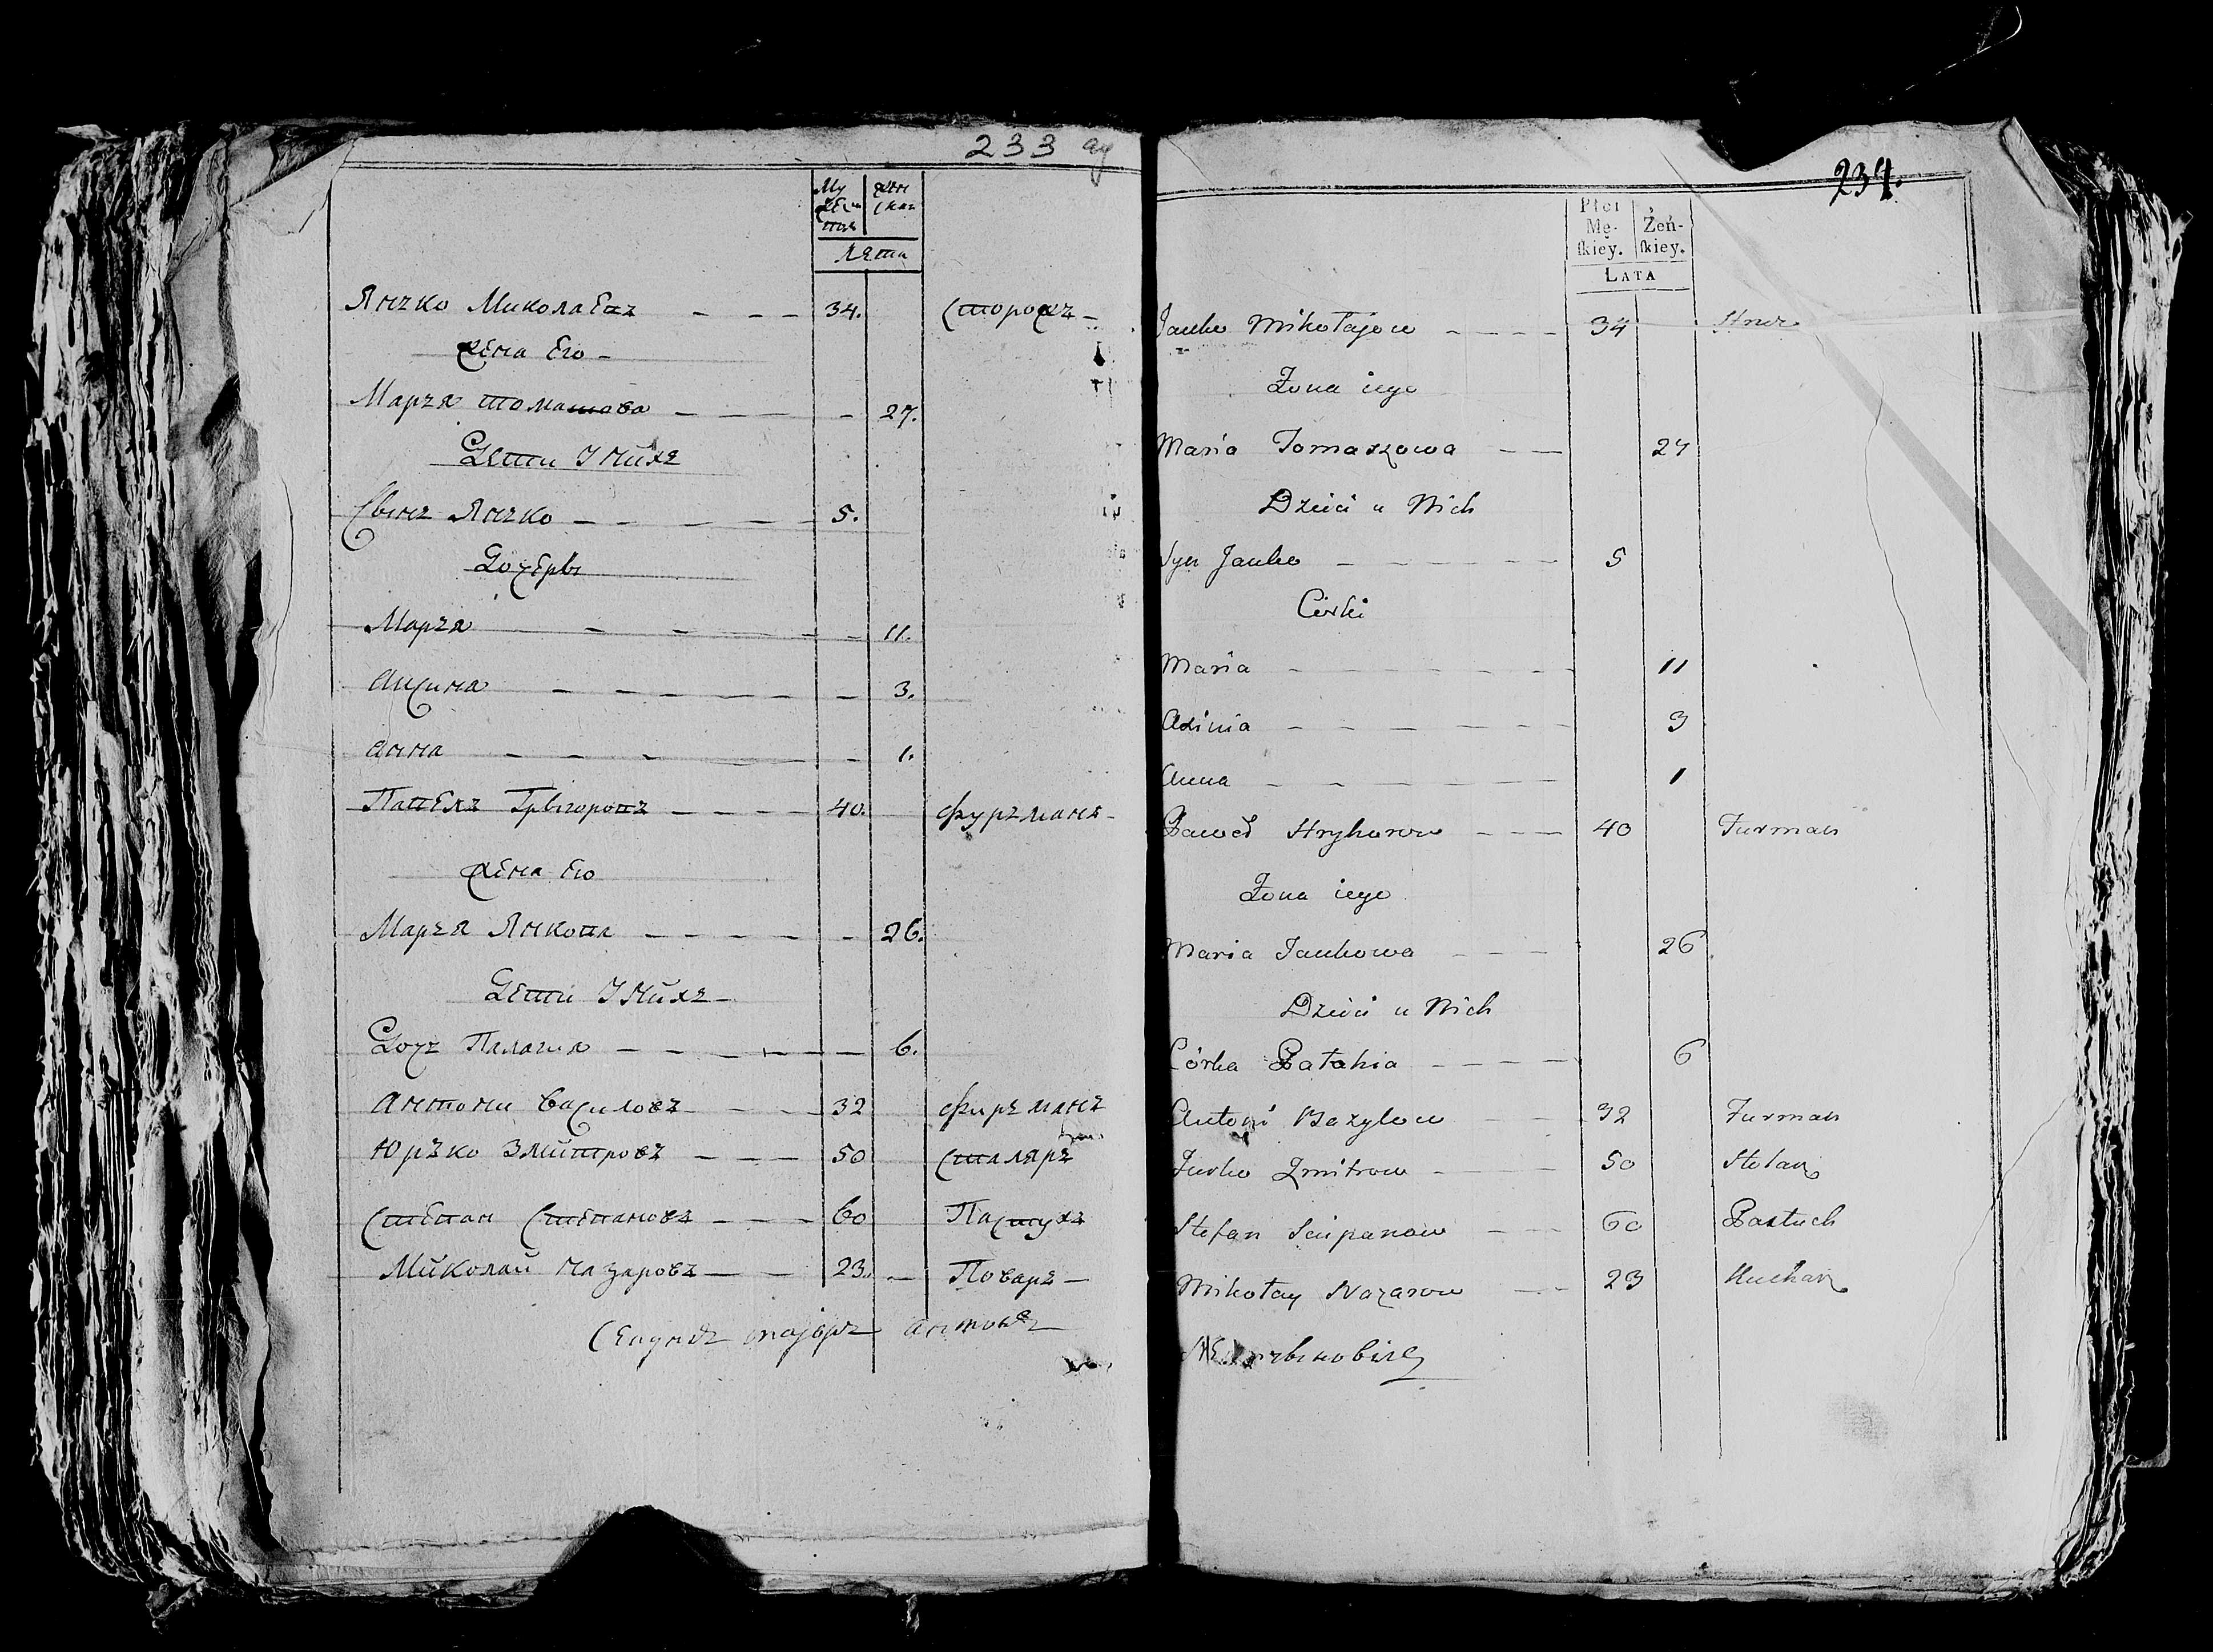 233
Му жес тва Жен ска
лета
Янъко Миколаевъ - - - 34. сторожъ -
жена Его -
Маръя томашова - - - - 27.
Дети У нихъ
Сынъ Янъко - - - - - 5.
Дочеры
Маръя - - - - 11.
Аксиня - - - - - 3.
анна - - - - - 1.
Павелъ Грыгоровъ - - - - 40. фуръманъ -
жена Его
Маръя Янкова - - - - - 26.
Дети У нихъ -
Дочъ Палагия - - - - - 6.
Антони василовъ - - - 32 фиръманъ
Юръко Змитровъ - - - 50 сталяръ
Степан Степановъ - - - 60 Пастухъ
Миколай назаровъ - - 23. - Поваръ -
Секундъ маjоръ антонъ
234.
Płci Mę- ſkiey. Żeń- ſkiey.
LATA
Janko Mikołajow - - - - 34 Stroż
Żona iego
Maria Tomaszowa - - 27
Dzieci u Nich
Syn Janko - - - - - - 5
Córki
Maria - - - - - - - 11
Axinia - - - - - - 3
Anna - - - - - - - 1
Paweł Hryhorow - - - 40 Furman
Żona iego
Maria Jankowa - - - 26
Dzieci u Nich
Córka Pałahia - - - - 6
Antoni Bazylow - - 32 Furman
Jurko Zmitrow - - - 50 Stolarz
Stefan Sciepanow - - - 60 Pastuch
Mikołay Nazarow - - - 23 Kucharz